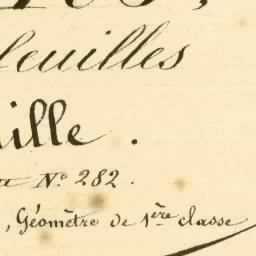 feuilles
ille.
N.º 282.
, Géomètre de 1ère classe